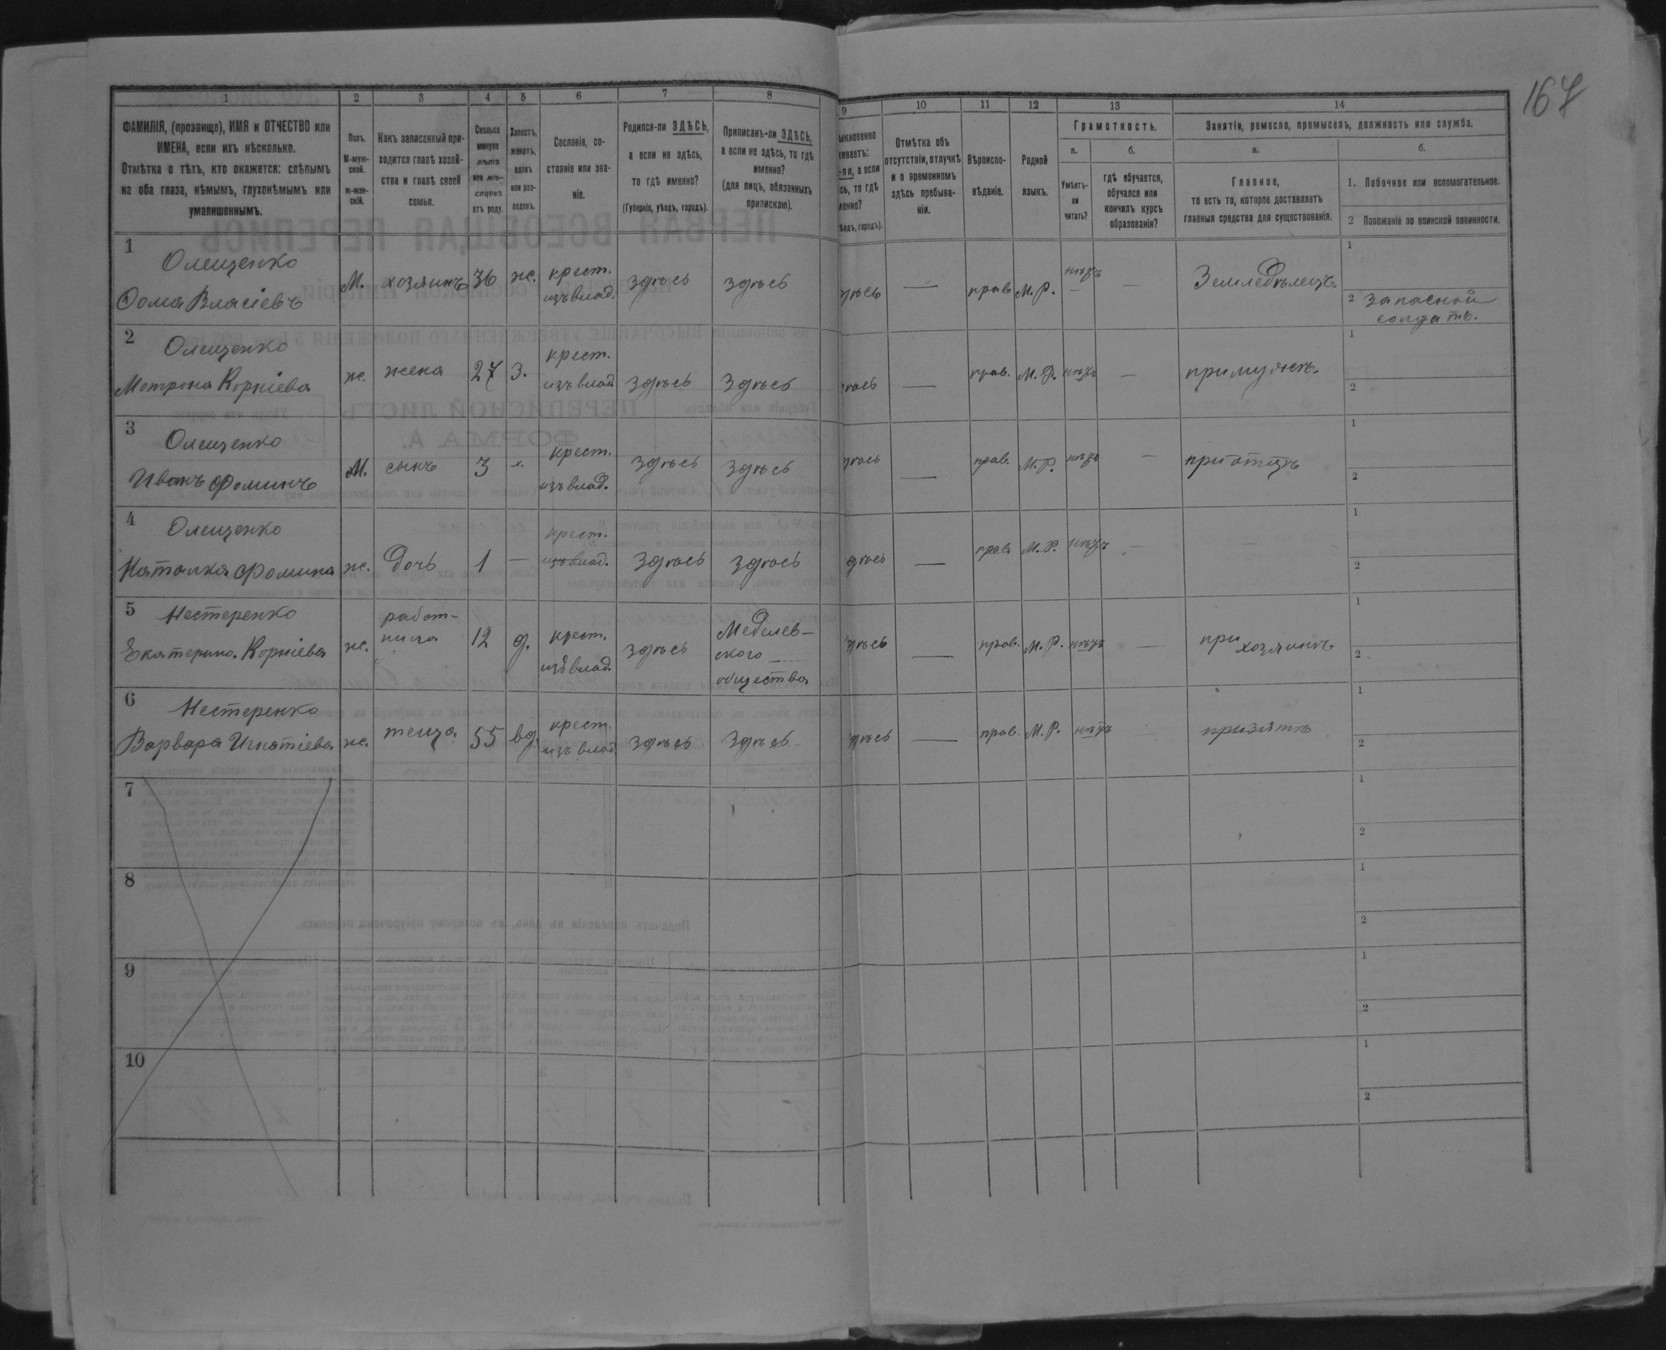 167
1 2 3 4 5 6 7 8 9 10 11 12 13 14
ФАМИЛІЯ, (прозвище), ИМЯ и ОТЧЕСТВО или
ИМЕНА, если ихъ нѣсколько.
Отмѣтка о тѣхъ, кто окажется: слѣпымъ
на оба глаза, нѣмымъ, глухонѣмымъ или
умалишеннымъ.
Полъ.
М-муж-
ской.
ж-жен-
скій.
Какъ записанный при-
ходится главѣ хозяй-
ства и главѣ своей
семьи.
Сколько
минуло
лѣтъ
или мѣ-
сяцевъ
отъ роду.
Холостъ,
женатъ,
вдовъ
или раз-
веденъ.
Сословіе, со-
стояніе или зва-
ніе.
Родился-ли ЗДѢСЬ,
а если не здѣсь,
то гдѣ именно?
(Губернія, уѣздъ, городъ).
Приписанъ-ли ЗДѢСЬ,
а если не здѣсь, то гдѣ
именно?
(для лицъ, обязанныхъ
припискою).
ыкновенно
иваетъ:
-ли, а если
сь, то гдѣ
менно?
ѣздъ, городъ).
Отмѣтка объ
отсутствіи, отлучкѣ
и о временномъ
здѣсь пребыва-
ніи.
Вѣроиспо-
вѣданіе.
Родной
языкъ.
Грамотность.
а.
Умѣетъ-
ли
читать?
б.
гдѣ обучается,
обучался или
кончилъ курсъ
образованія?
Занятіе, ремесло, промыселъ, должность или служба.
а.
Главное,
то есть то, которое доставляетъ
главныя средства для существованія.
б.
1. Побочное или вспомогательное.
2 Положеніе по воинской повинности.
1 Олещенко
Фома Власіевъ М. хозяинъ 36 ж. крест. изъ влад. здѣсь здѣсь дѣсь — прав. М.Р. нѣтъ — Земледѣлецъ.
1
2 запасной
солдатъ.
2 Олещенко
Мотрона Корніева ж. жена 27 з. крест. изъ влад здѣсь здѣсь дѣсь — прав. М.Р. нѣтъ — при мужѣ.
1
2
3 Олещенко
Иванъ Фоминъ М. сынъ 3 х. крест. изъ влад. здѣсь здѣсь дѣсь — прав. М.Р. нѣтъ — при отцѣ
1
2
4 Олещенко
Наталка Фомина ж. дочь 1 — крест. изъ влад. здѣсь здѣсь дѣсь — прав М.Р. нѣтъ — —
1
2
5 Нестеренко
Екатерина Корніева ж. работ-
ница 12 д. крест. изъ влад. здѣсь
ского
общества дѣсь — прав. М.Р. нѣтъ — при хозяинѣ
1
2
6 Нестеренко
Варвара Игнатіева ж. теща 55 вд. крест. изъ влад здѣсь здѣсь дѣсь — прав. М.Р. нѣтъ при зятѣ
1
2
7
1
2
8
1
2
9
1
2
10
1
2